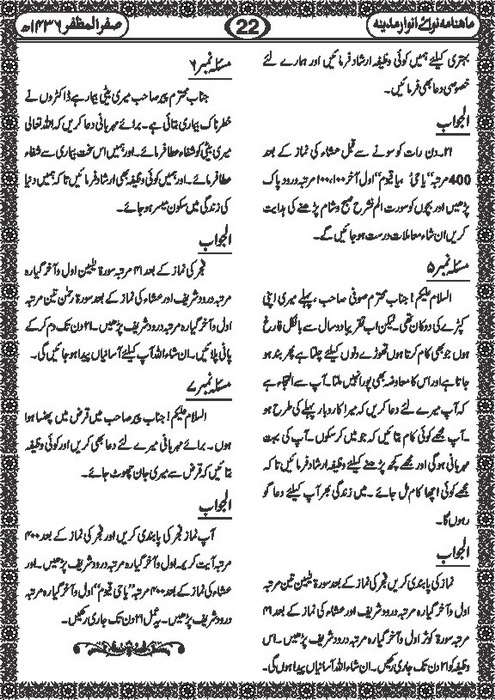 ماہنامہ نوائے انوار مدینہ
22
صفر المظفر ۱۴۳۶ھ
بہتری کیلئے ہمیں کوئی وظیفہ ارشاد فرمائیں اور ہمارے لئے
خصوصی دعا بھی فرمائیں۔
الجواب
۲۱۔دن رات کو سونے سے قبل عشاء کی نماز کے بعد
400 مرتبہ "یا حیُّ یا قیوم" اول آخر ۱۰۰،۱۰۰ مرتبہ درود پاک
پڑھیں اور بچوں کو سورت الم نشرح صبح و شام پڑھنے کی ہدایت
کریں ان شاء معاملات درست ہو جائیں گے۔
مسئلہ نمبر ۵
السلام علیکم! جناب محترم صوفی صاحب، پہلے میری اپنی
کپڑے کی دوکان تھی۔ لیکن اب تقریباً دو سال سے بالکل فارغ
ہوں جو بھی کام کرتا ہوں تھوڑے دنوں کیلئے چلتا ہے پھر بند ہو
جاتا ہے اور اس کا معاوضہ بھی پورا نہیں ملتا۔ آپ سے التجاء ہے
کہ آپ میرے لئے دعا کریں کہ میرا کاروبار پہلے کی طرح ہو
۔ آپ مجھے کوئی کام بتائیں کہ جو میں کر سکوں۔ آپ کی بہت
مہربانی ہوگی اور مجھے کچھ پڑھنے کیلئے وظیفہ ارشاد فرمائیں تاکہ
مجھے کوئی اچھا کام مل جائے۔ میں زندگی بھر آپ کیلئے دعا گو
رہوں گا۔
الجواب
نماز کی پابندی کریں فجر کی نماز کے بعد سورۃ یٰسین تین مرتبہ
اول و آخر گیارہ مرتبہ درود شریف اور عشاء کی نماز کے بعد ۴۱
مرتبہ سورۃ کوثر اول و آخر گیارہ مرتبہ درود شریف پڑھیں۔ اس
وظیفہ کو ۲۱ دن تک جاری رکھیں۔ ان شاء اللہ آسانیاں پیدا ہوں گی۔
مسئلہ نمبر ۶
جناب محترم پیر صاحب میری بیٹی بیمار ہے ڈاکٹروں نے
خطرناک بیماری بتائی ہے۔ برائے مہربانی دعا کریں کہ اللہ تعالی
میری بیٹی کو شفاء عطا فرمائے۔ اور ہمیں اس سخت بیماری سے شفاء
عطا فرمائے۔ اور ہمیں کوئی وظیفہ بھی ارشاد فرمائیں تاکہ ہمیں دنیا
کی زندگی میں سکون میسر ہو جائے۔
الجواب
فجر کی نماز کے بعد ۴۱ مرتبہ سورۃ یٰسین اول و آخر گیارہ
مرتبہ درود شریف اور عشاء کی نماز کے بعد سورۃ رحمٰن تین مرتبہ
اول و آخر گیارہ مرتبہ درود شریف پڑھیں۔ ۲۱ دن تک دم کر کے
پانی پلائیں۔ ان شاء اللہ آپ کیلئے آسانیاں پیدا ہو جائیں گی۔
مسئلہ نمبر ۷
السلام علیکم! جناب پیر صاحب میں قرض میں پھنسا ہوا
ہوں۔ برائے مہربانی میرے لئے دعا بھی کریں اور کوئی وظیفہ
بتائیں کہ قرض سے میری جان چھوٹ جائے۔
الجواب
آپ نماز فجر کی پابندی کریں اور فجر کی نماز کے بعد ۳۰۰
مرتبہ آیت کریمہ اول و آخر گیارہ گیارہ مرتبہ درود شریف پڑھیں۔ اور
عشاء کی نماز کے بعد ۳۰۰ مرتبہ "یا حی قیوم" اول و آخر گیارہ مرتبہ
درود شریف پڑھیں۔ یہ عمل ۲۱ دن تک جاری رکھیں۔